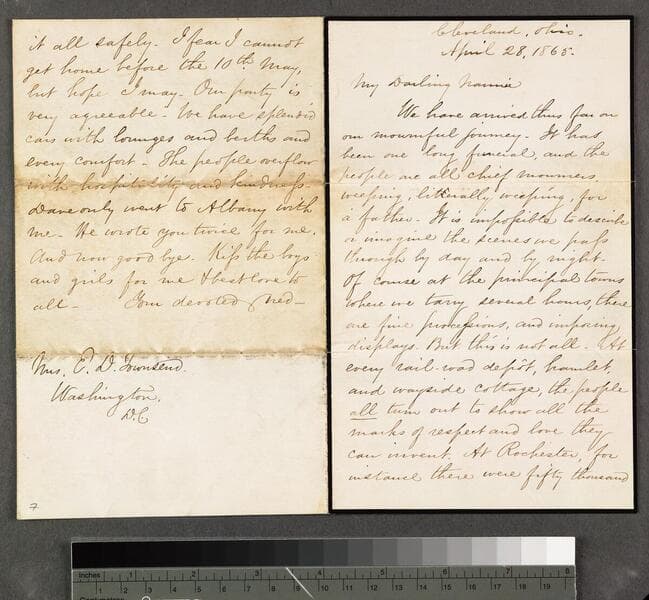 it all safely. I fear I cannot
get home before the 10th May,
but hope I may. Our party is
very agreeable. We have splendid
cars with lounges and berths and
every comfort. The people overflow
with hospitality and kindness.
Dave only went to Albany with
me. He wrote you twice for me.
And now good bye. Kiss the boys
and girls for me & best love to
all. Your devoted Ned
Mrs. E. D. Townsend.
Washington,
D.C.
7
Cleveland, Ohio.
April 28, 1865.
My Darling Nannie
We have arrived thus far on
our mournful journey. It has
been one long funeral, and the
people are all chief mourners,
weeping, literally weeping, for
a father. It is impossible to describe
or imagine the scenes we pass
through by day and by night.
Of course at the principal towns
where we tarry several hours, there
are fine processions, and imposing
displays. But this is not all. At
every rail-road depôt, hamlet,
and wayside cottage, the people
all turn out to show all the
marks of respect and love they
can invent. At Rochester, for
instance there were fifty thousand
Inches 1 2 3 4 5 6 7 8
1 2 3 4 5 6 7 8 9 10 11 12 13 14 15 16 17 18 19
Centimetres